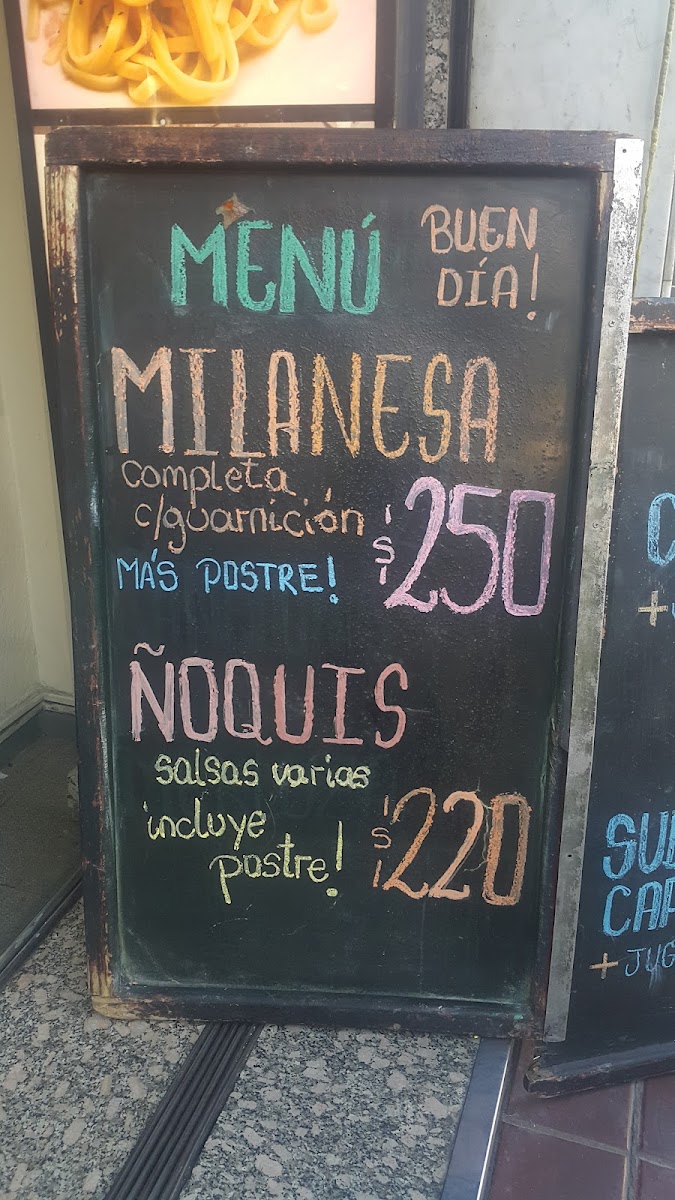 MENÚ
BUEN
DÍA!
MILANESA
completa
c/guarnición
MÁS POSTRE!
$250
ÑOQUIS
salsas varias
incluye
postre!
$220
+
+